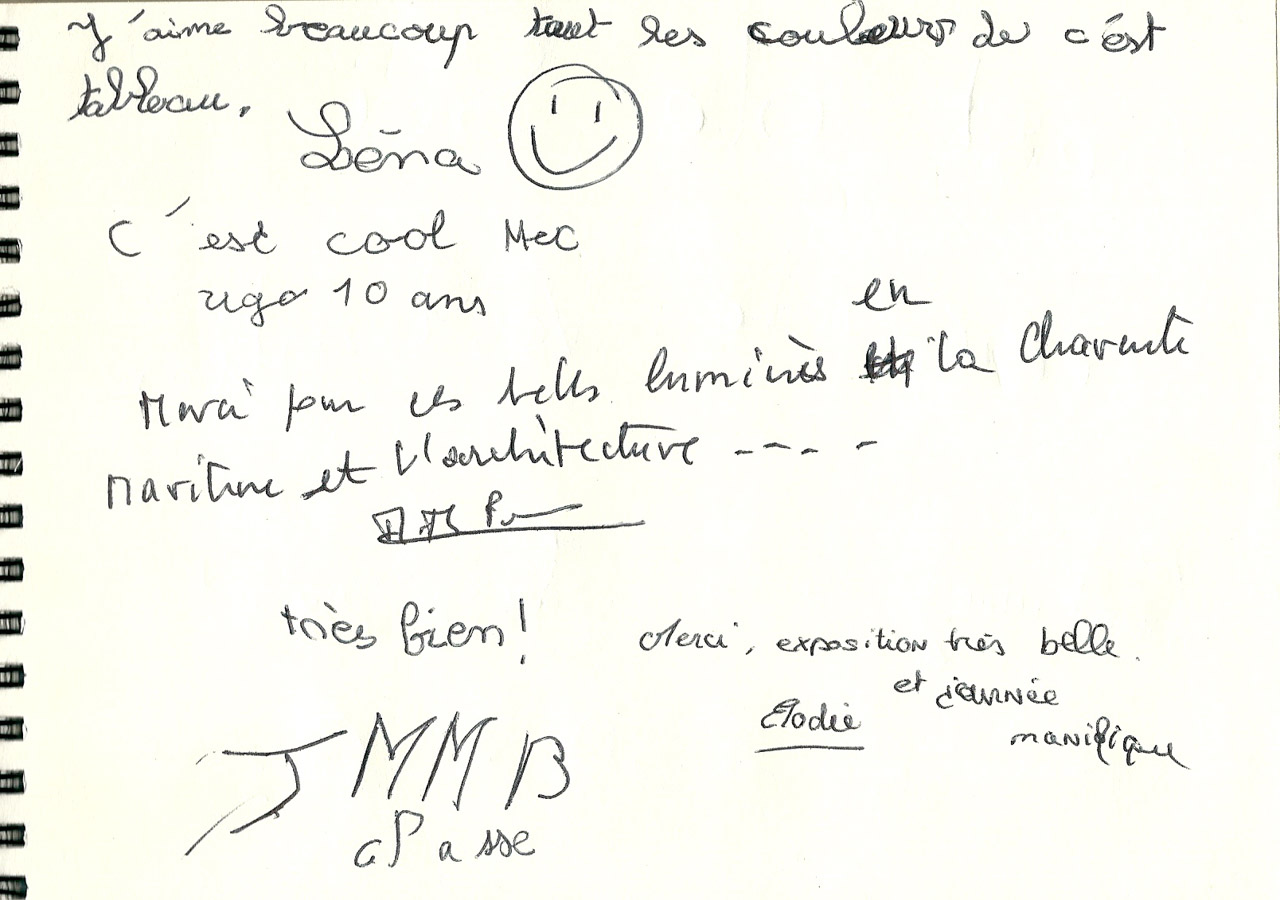 J'aime beaucoup tout les couleurs de c'ést
tableau.
Léna
C'est cool Mec
ugo 10 ans
Merci pour ces belles lumières en la Charente
Maritime et l'architecture ---- -
très bien!
Merci, exposition très belle.
et journée
manifique
Elodie
JMMB
aPasse